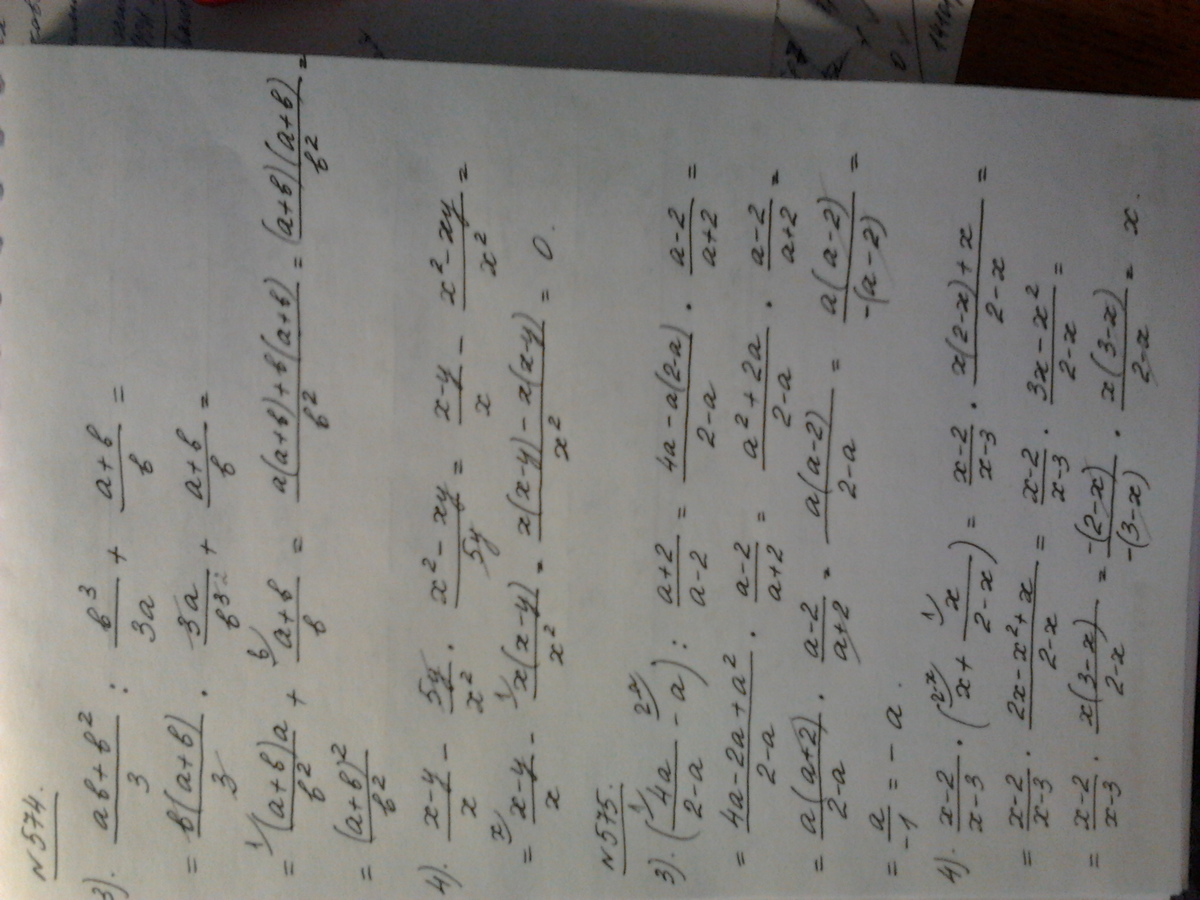 N 574.
3). (ab+b²)/3 : b³/3a + (a+b)/b =
= b(a+b)/3 · 3a/b³ + (a+b)/b =
= (a+b)a/b² + (a+b)/b = (a(a+b)+b(a+b))/b² = (a+b)(a+b)/b² =
= (a+b)²/b²
4). (x-y)/x - 5y/x² · (x²-xy)/5y = (x-y)/x - (x²-xy)/x² =
= (x-y)/x - x(x-y)/x² = (x(x-y) - x(x-y))/x² = 0.
N 575.
3). (4a/(2-a) - a) : (a+2)/(a-2) = (4a-a(2-a))/(2-a) · (a-2)/(a+2) =
= (4a-2a+a²)/(2-a) · (a-2)/(a+2) = (a²+2a)/(2-a) · (a-2)/(a+2) =
= a(a+2)/(2-a) · (a-2)/(a+2) = a(a-2)/(2-a) = a(a-2)/-(a-2) =
= a/-1 = -a.
4). (x-2)/(x-3) · (x + x/(2-x)) = (x-2)/(x-3) · (x(2-x)+x)/(2-x) =
= (x-2)/(x-3) · (2x-x²+x)/(2-x) = (x-2)/(x-3) · (3x-x²)/(2-x) =
= (x-2)/(x-3) · x(3-x)/(2-x) = -(2-x)/-(3-x) · x(3-x)/(2-x) = x.